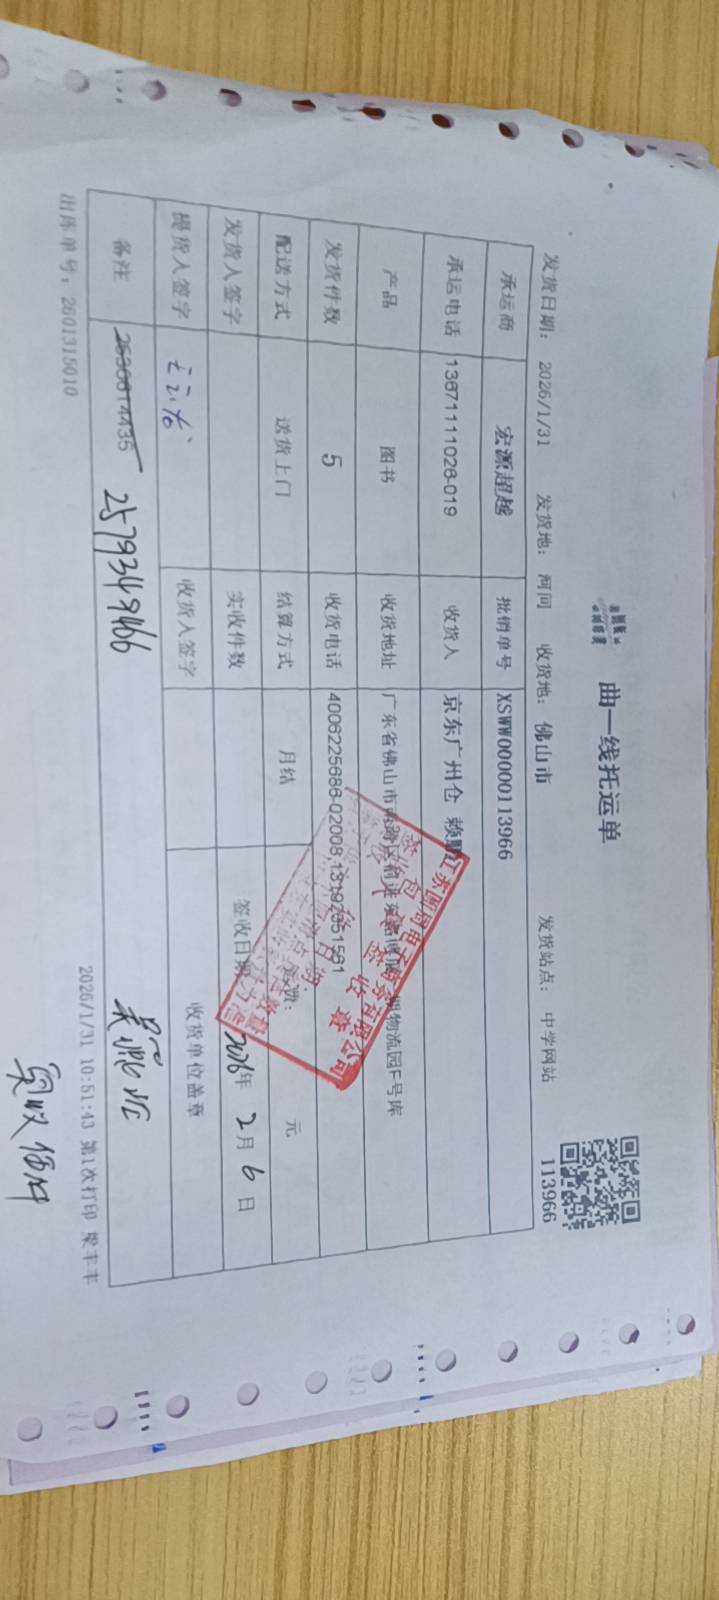 曲一线托运单
发货日期： 2026/1/31 发货地： 河间 收货地： 佛山市 发货站点： 中学网站 113966
承运商 宏源超越 批销单号 XSWW00000113966
承运电话 13671111028-019 收货人 京东广州仓 赖
产品 图书 收货地址 广东省佛山市南海区 物流园F号库
发货件数 5 收货电话 4006225686-02008,13192051581
配送方式 送货上门 结算方式 月结 运费： 元
发货人签字 实收件数 签收日期 2026年 2月 6日
提货人签字 收货人签字 收货单位盖章
备注 2630614435
出库单号：2601315010 2026/1/31 10:51:43 第1次打印 梁丰丰
实收伍件